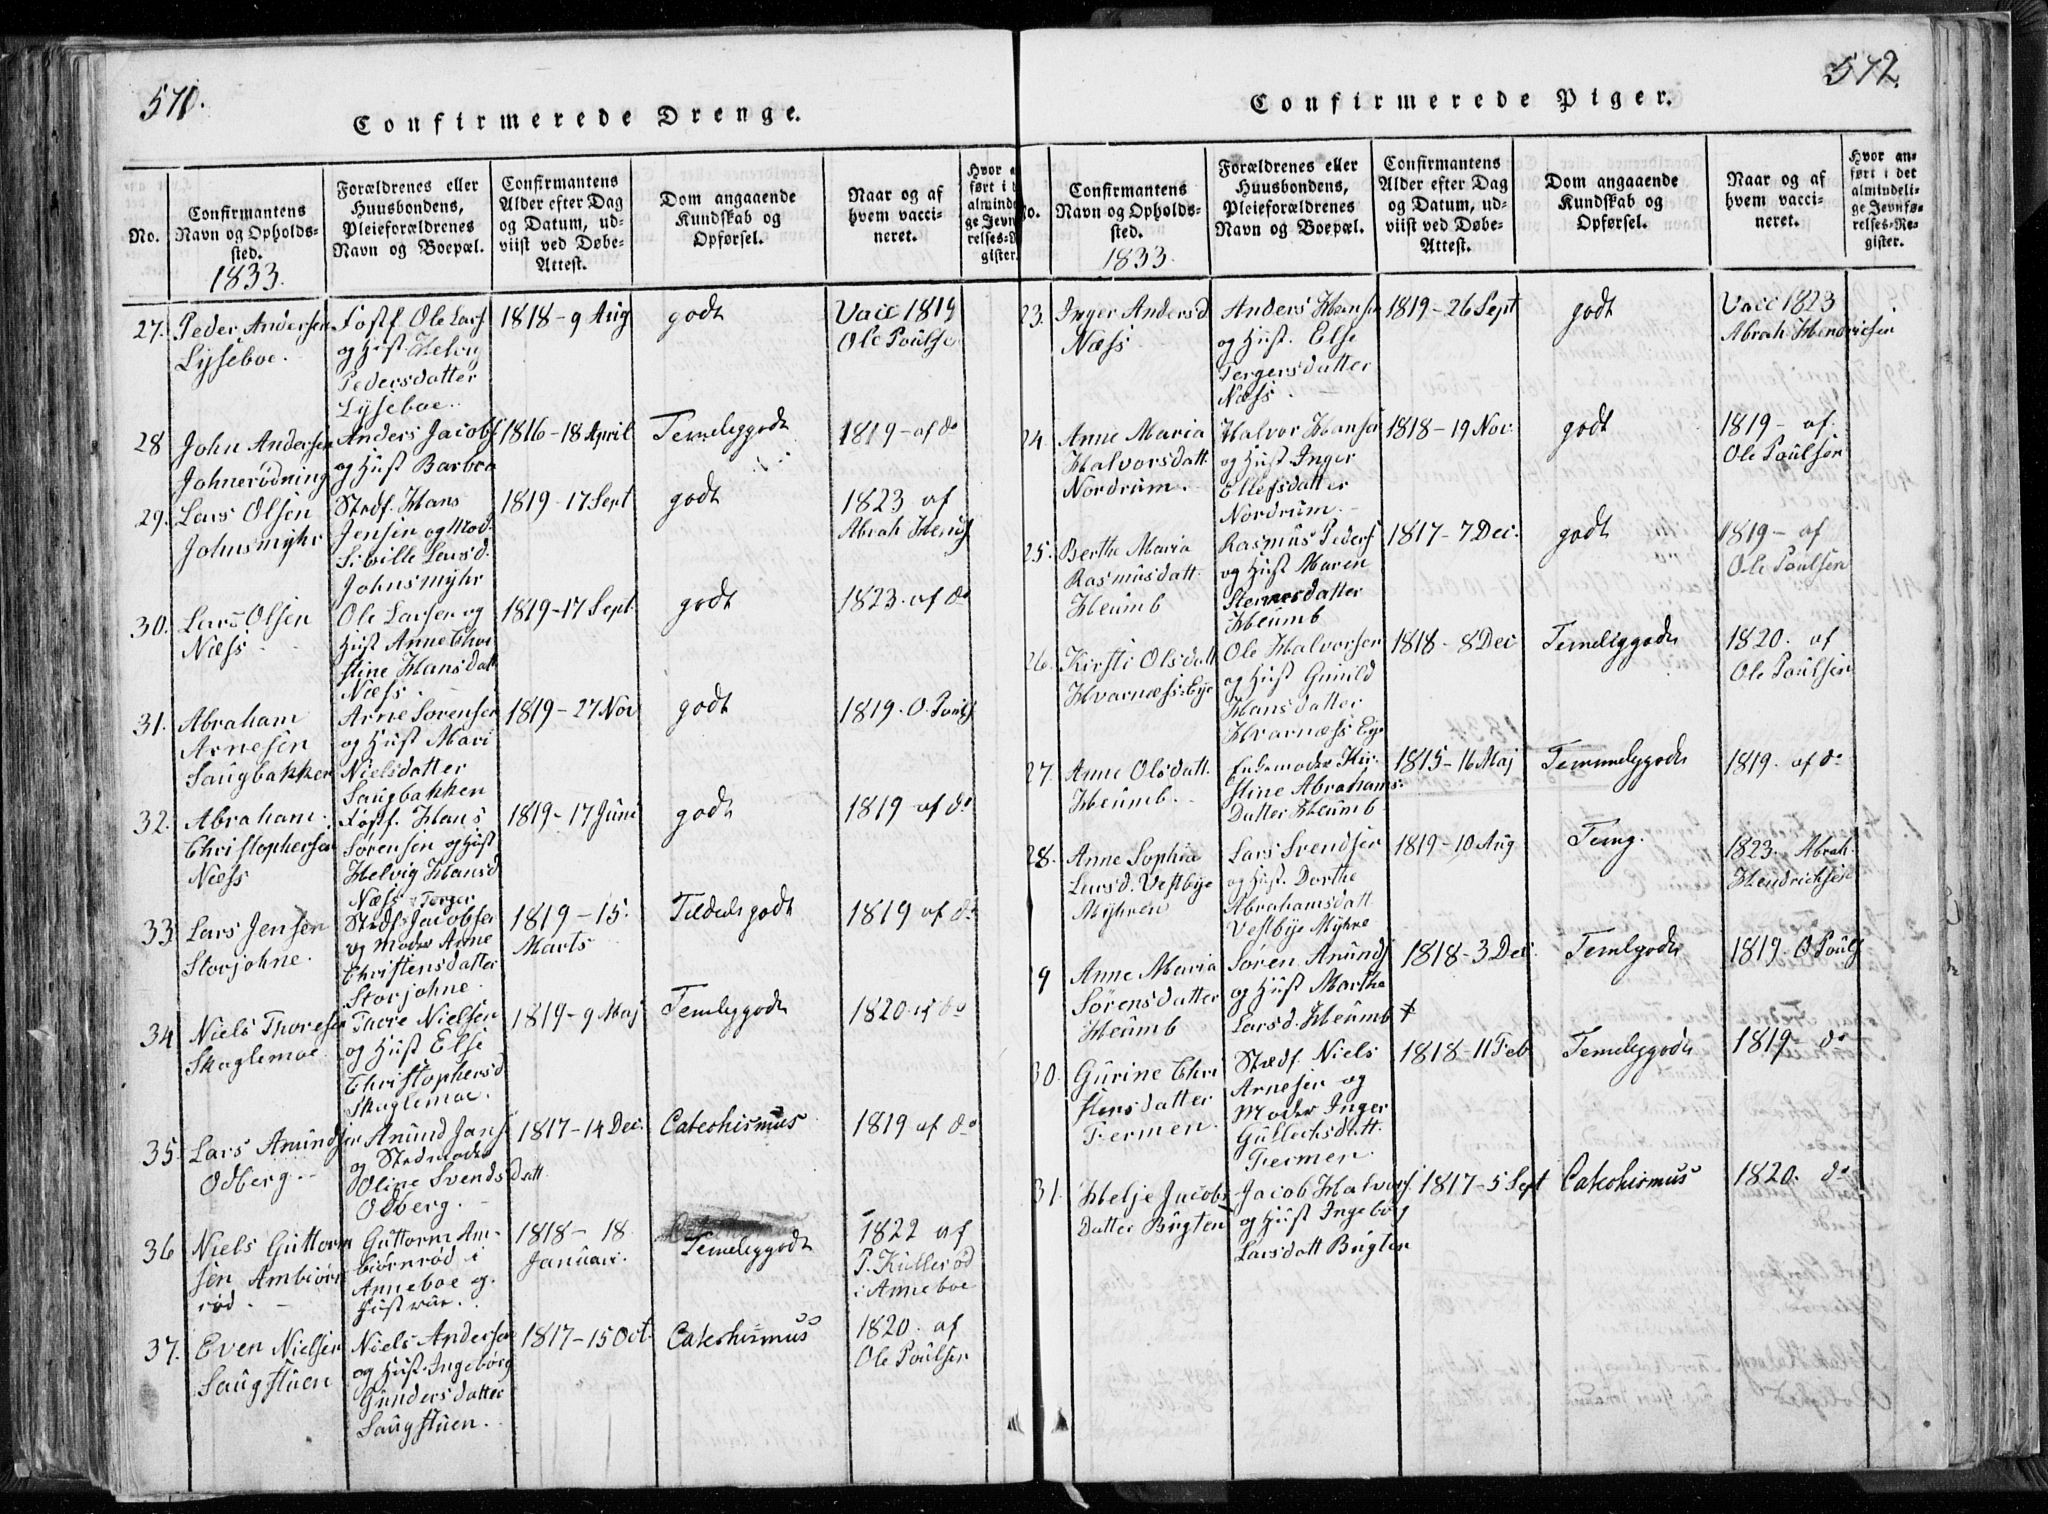 571.
Confirmerede Drenge.
No.
Confirmantens
Navn og Opholds-
sted.
1833.
Forældrenes eller
Huusbondens,
Pleieforældrenes
Navn og Boepæl.
Confirmantens
Alder efter Dag
og Datum, ud-
viist ved Døbe-
Attest.
Dom angaaende
Kundskab og
Opførsel.
Naar og af
hvem vacci-
neret.
27. Peder Andersen
Lyseboe.
Fostf. Ole Lars
og Hust Helvig
Pedersdatter
Lyseboe.
1818-9 Aug
godt
Vacc 1819
Ole Poulsen
28 John Andersen
Johnerødning
Anders Jacobs
og Hust Barbra
1816-18 April
Temeliggodt
1819-af do
29. Lars Olsen
Johnsmyhr
Stedf. Hans
Jensen og Mod.
Siville Larsd.
Johnsmyhr
1819-17 Sept
godt
1823 af
Abrah Henrs
30. Lars Olsen
Næss
Ole Larsen og
Hust Anne Chri
stine Hansdatt
Næss.
1819-17 Sept.
godt
1823. af do
31. Abraham
Arnesen
Saugbakken
Arne Sorensen
og Hust Mari
Nielsdatter
Saugbakken
1819-27 Nov
godt
1819. O. Pouls
32. Abraham
Christophersen
Næss
Fostf. Hans
Sørensen og Hust
Helvig Hansd
Næss
1819-17 Juni
godt
1819 af do
33 Lars Jensen
Storjohne.
Stedf. Torger Jacobsen
og Moder Anne
Christensdatter
Storjohne.
1819-15.
Marts
godt
1819 af do
34 Niels Thoresen
Skaglemoe
Thore Nielsen
og Hust Else
Christophersd
Skaglemoe.
1819-9 Maj
Temleggodt
1820 af do
35. Lars Anundsen
Odberg.
Anund Jans
og Stedmoder
Oline Svendsdatt.
Odberg.
1817-14 Dec.
Catechismus
1819 af do
36 Niels Guttorm
sen Ambiørn
rød.
Guttorm Am-
biørnrød i
Anneboe og
Hustrue.
1818-18
Januari.
Temeleggodt
1822 af
P. Kullerød
i Anneboe
37. Even Nielsen
Saugstuen
Niels Andersen
og Hust Ingeborg
Gundersdatter
Saugstuen.
1817-15 Oct.
Catechismus
1820. af
Ole Poulsen
572.
Confirmerede Piger.
No.
Confirmantens
Navn og Opholds-
sted.
1833.
Forældrenes eller
Huusbondens,
Pleieforældrenes
Navn og Boepæl.
Confirmantens
Alder efter Dag
og Datum, ud-
viist ved Døbe-
Attest.
Dom angaaende
Kundskab og
Opførsel.
Naar og af
hvem vacci-
neret.
Hvor an-
ført i det
almindeli-
ge Jevnfø-
relses-Re-
gister.
23. Inger Andersd
Næss
Anders Hansen
og Hust. Else
Tergersdatter
Næss.
1819-26 Sept
godt
Vacc 1823
Abrah Hendricsen
24. Anne Maria
Halvorsdatt.
Nordrum.
Halvor Hansen
og Hust Inger
Ellefsdatter
Nordrum.
1818-19 Nov.
godt
1819-af.
Ole Poulsen
25. Berthe Maria
Rasmusdatt.
Heumb
Rasmus Peders
og Hust Maren
Heumb
1817-7 Dec.
godt
1819-af
Ole Poulsen
26. Kirsti Olsdatt
Hvarnæss-Eye
Ole Halvorsen
og Hust Gunild
Hansdatter
Hvarnæss Eye
1818-8 Dec
Temeliggodt
1820. af
Ole Poulsen
27. Anne Olsdatt.
Heumb.
Enkemoder Kir-
stine Abrahams-
Datter Heumb
1815-16 Maj
Temmeleggodt
1819. af do
28. Anne Sophia
Larsd. Vestbye
Myhren
Lars Svendsen
og Hust. Dorthe
Abrahamsdatt
Vestbye Myhre
1819-10 Aug
Temg.
1823. Abrah.
Hendrichsen
29 Anne Maria
Sørensdatter
Heumb
Søren Anunds
og Hust Marthe
Larsd. Heumb
1818-3 Dec.
Temlgodt
1819. O Pouls
30. Gurine Chri
stensdatter
Fermen.
Stedf. Niels
Arnesen og
Moder Inger
Gullechsdatt.
Fermen.
1818-11 Feb
Temeleggodt
1819 do
31. Helje Jacobs
Datter Bugten
Jacob Halvors.
og Hust Ingeborg
Larsdatt Bugten
1817-5 Sept
Catechismus
1820. do